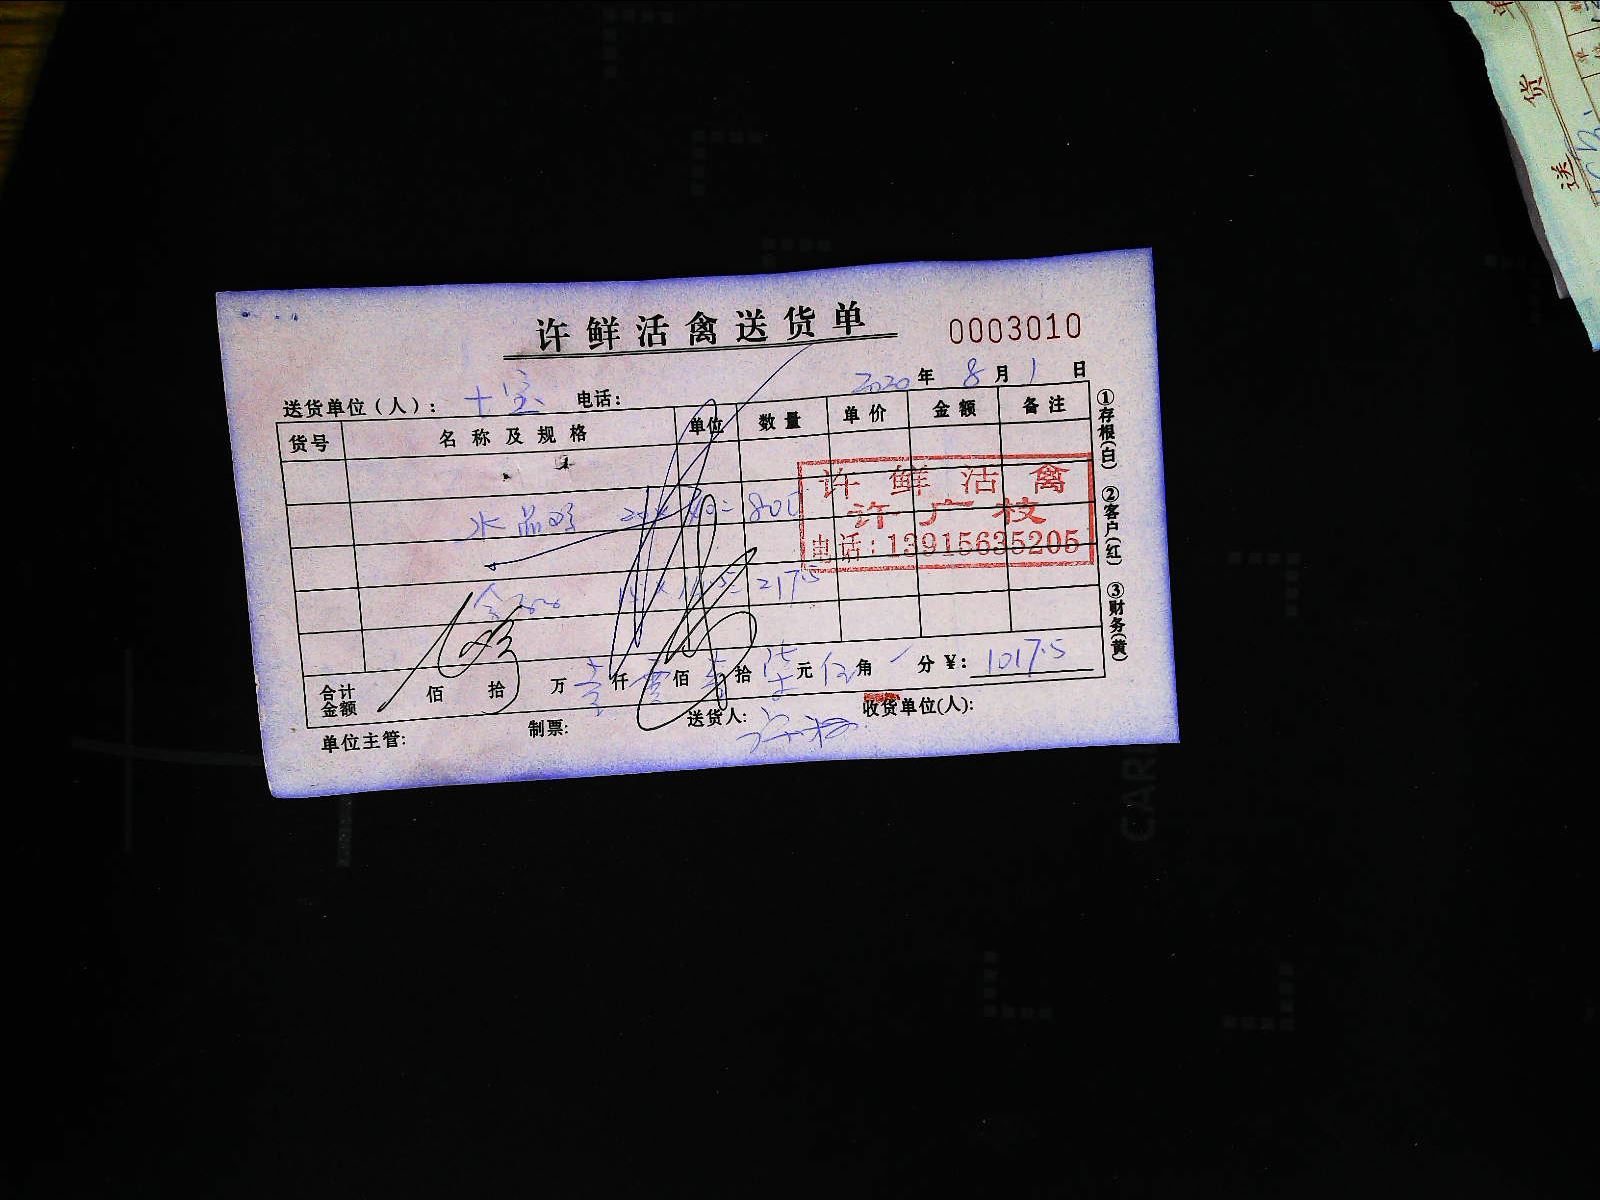 许鲜活禽送货单 0003010
2020年 8月 1日
送货单位(人): 十宝 电话:
货号 名称及规格 单位 数量 单价 金额 备注
水晶鸡 =800
217.5
许鲜活禽
许广枝
电话:13915635205
合计金额 佰 拾 万 壹仟 零佰 壹拾 柒元 伍角 分 ¥: 1017.5
单位主管: 制票: 送货人: 收货单位(人):
①存根(白) ②客户(红) ③财务(黄)
送 货 单